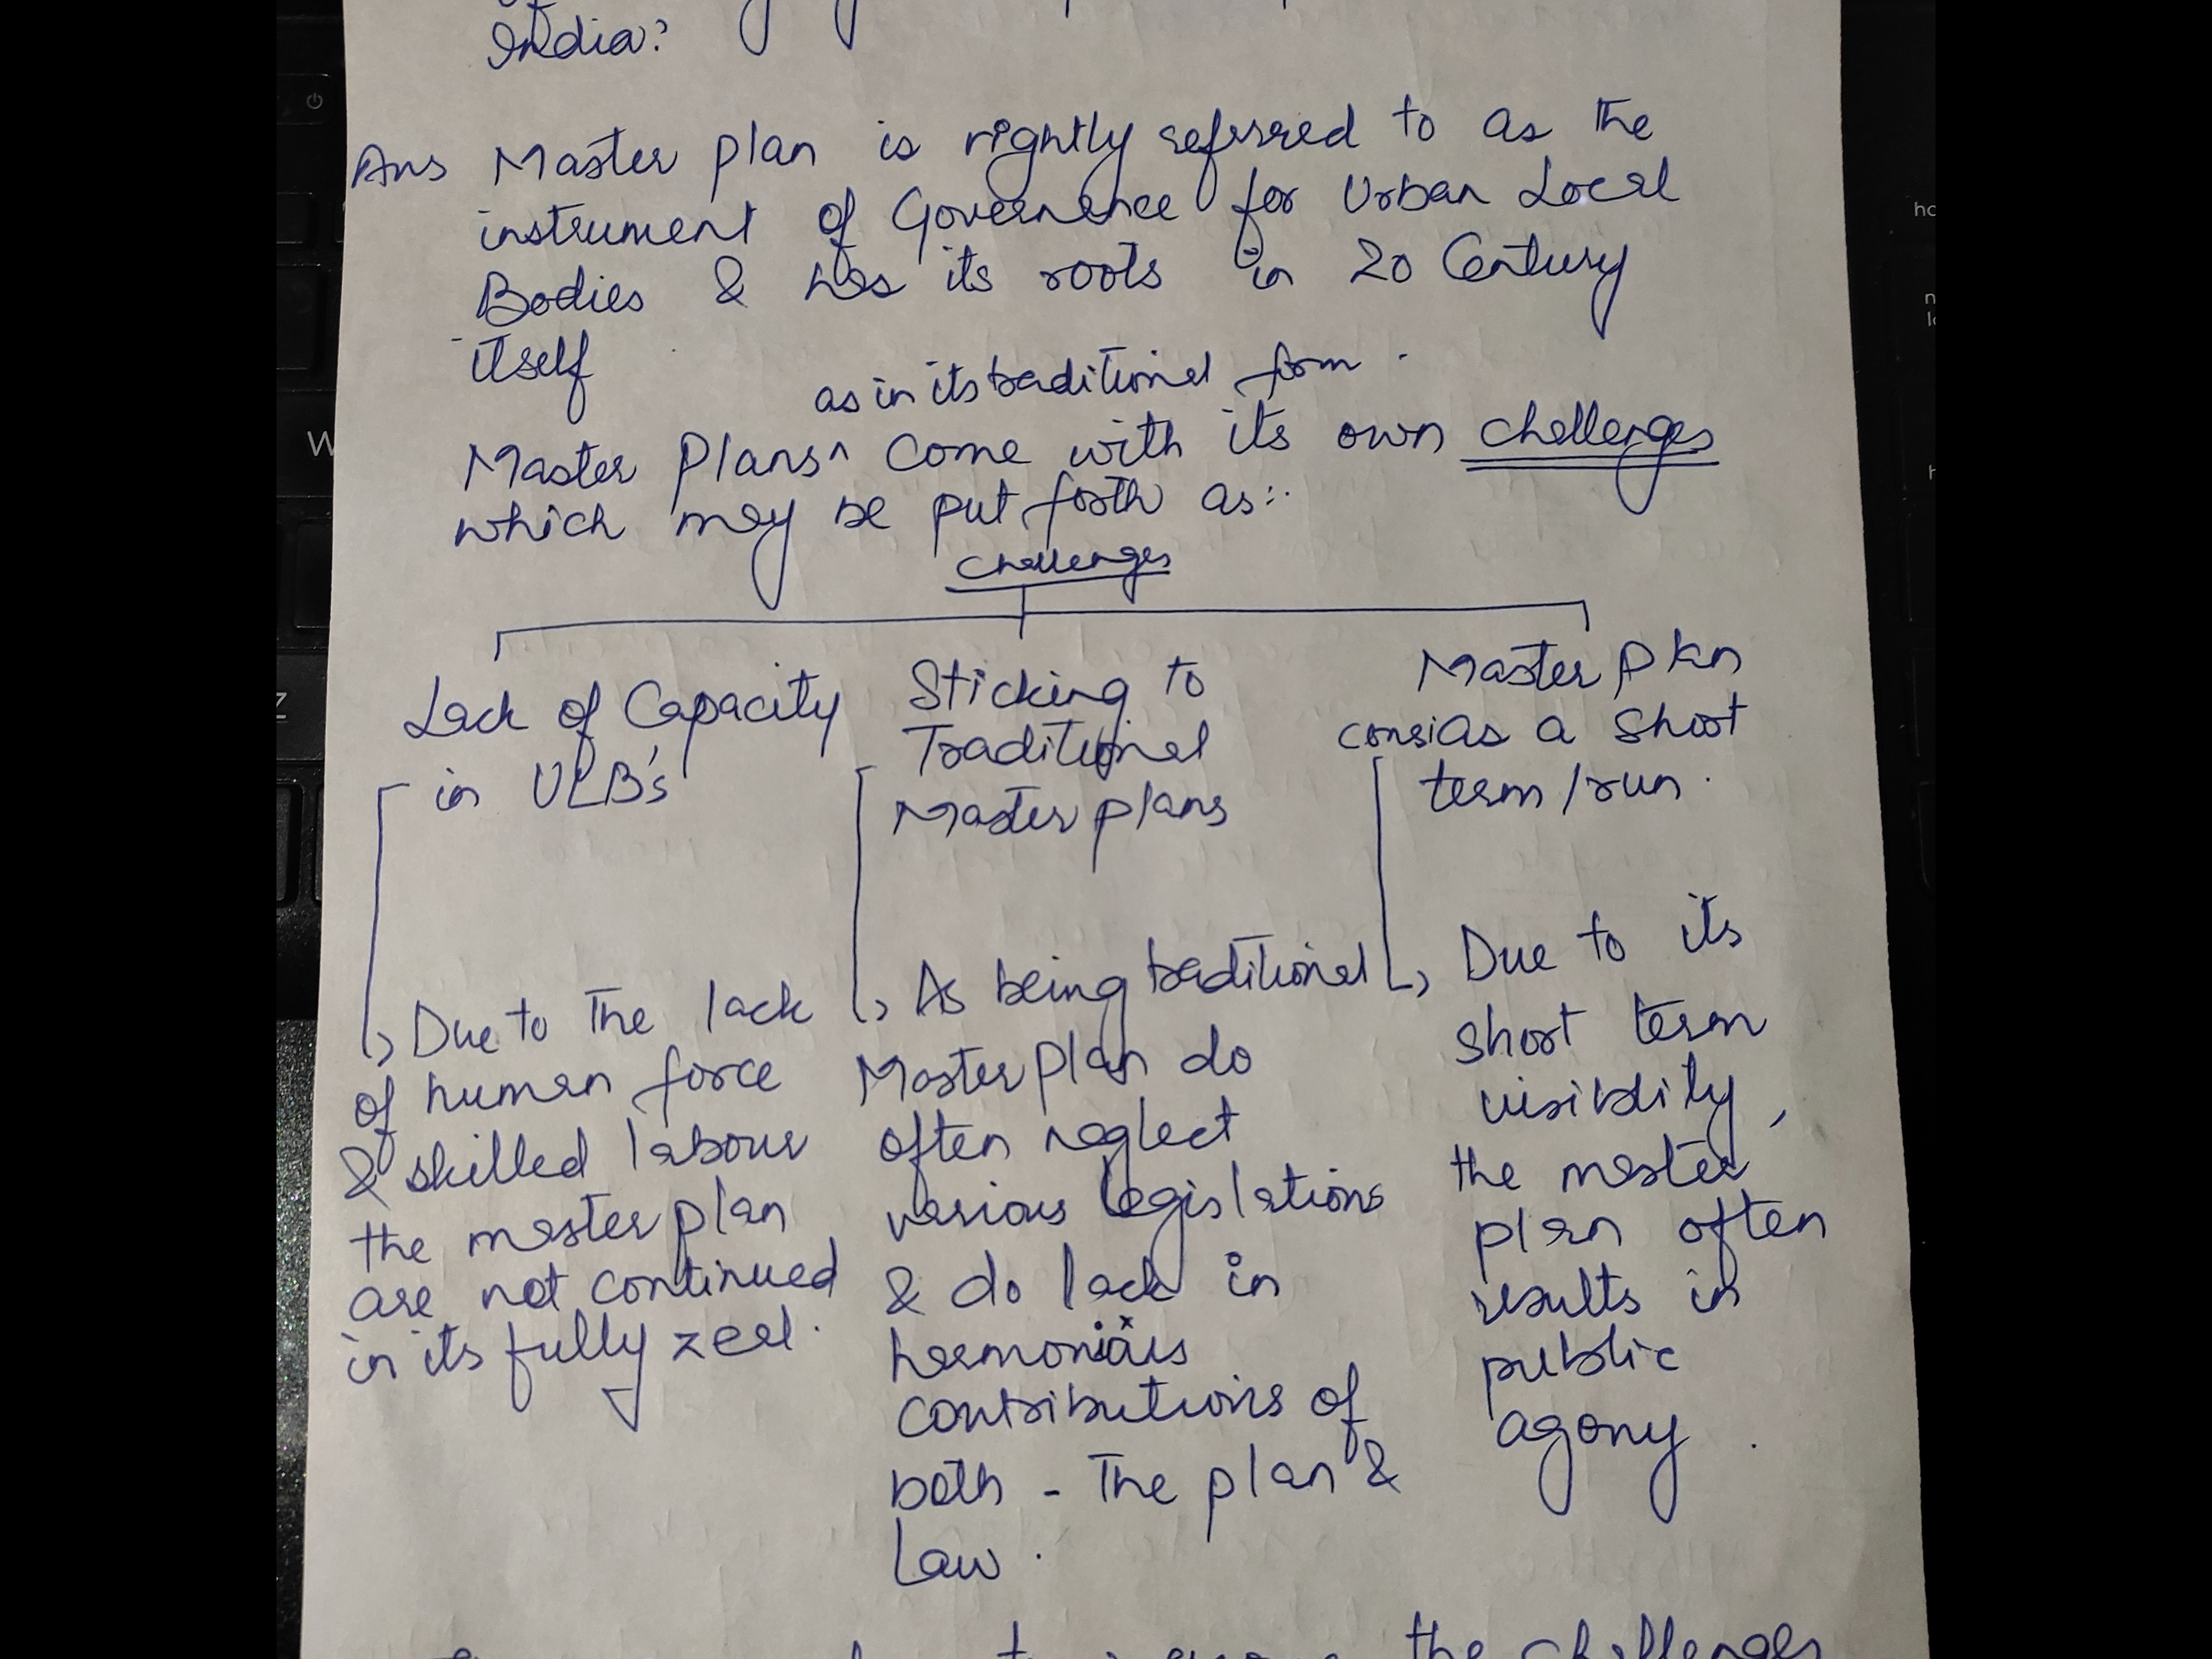 India?
Ans Master plan is rightly referred to as the
instrument of Governence for Urban Local
Bodies & has its roots in 20 Century
itself
as in its traditional form.
Master Plans^ come with its own challenges
which may be put forth as:
challenges
Lack of Capacity
in ULB's
Due to the lack
of human force
& skilled labour
the master plan
are not continued
in its fully zeal.
Sticking to
Traditional
Master plans
As being traditional
Master plan do
often neglect
various legislations
& do lack in
harmonious
contributions of
both - The plan &
Law.
Master plan
as a short
term/run.
Due to its
short term
visiblity,
the master
plan often
results in
public
agony.
the challenges